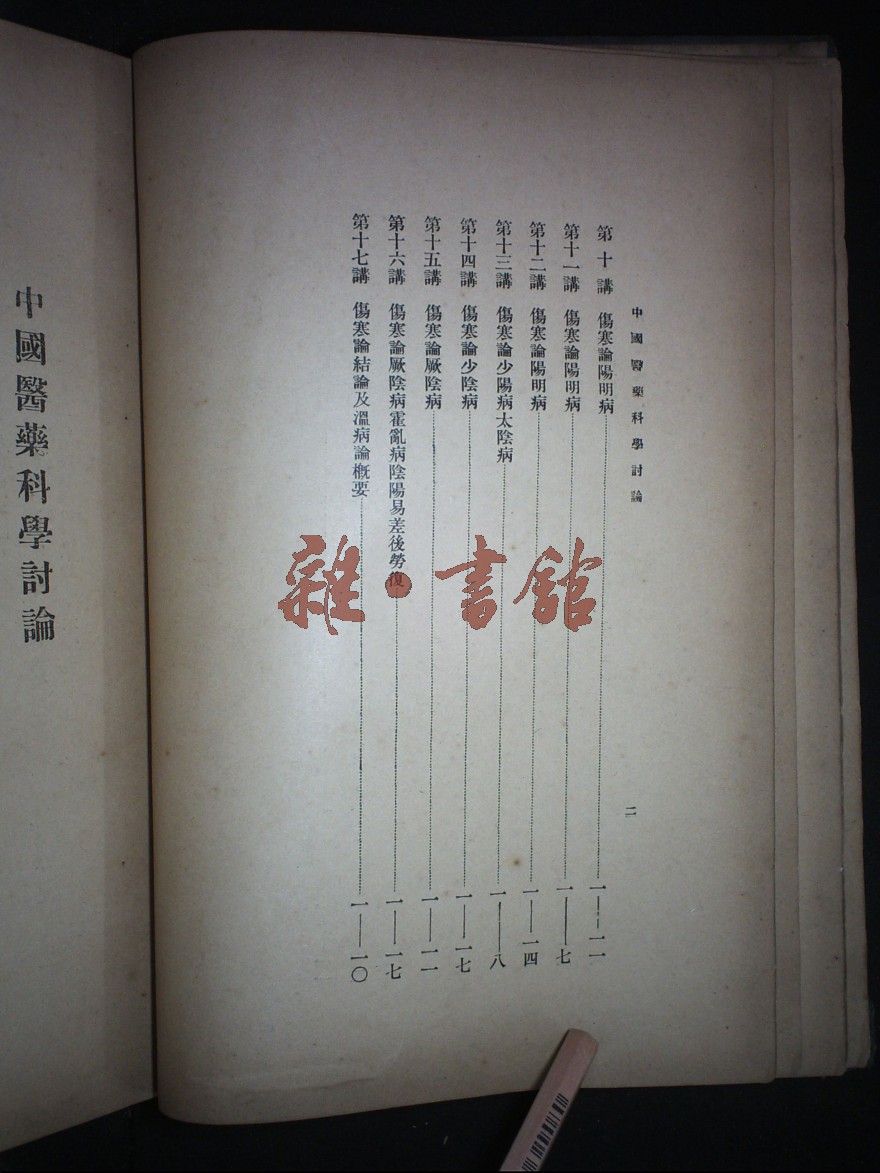 中國醫藥科學討論
二
第十講 傷寒論陽明病 一——一一
第十一講 傷寒論陽明病 一——七
第十二講 傷寒論陽明病 一——一四
第十三講 傷寒論少陽病太陰病 一——八
第十四講 傷寒論少陰病 一——一七
第十五講 傷寒論厥陰病 一——一一
第十六講 傷寒論厥陰病霍亂病陰陽易差後勞復 一——一七
第十七講 傷寒論結論及溫病論概要 一——一〇
中國醫藥科學討論
雜·書館